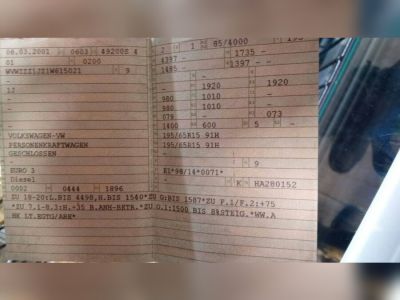 06.03.2001 0603 49200S 4
01 0200
WVWZZZ1JZ1W615021 9
-
12
-
-
-
VOLKSWAGEN-VW
PERSONENKRAFTWAGEN
GESCHLOSSEN
EURO 3
Diesel
0002 0444 1896
2 1 85/4000
4397 - 1735 -
1485 - 1397 -
-
- 1920 1920
980 1010 -
980 1010 -
079 - 073
1400 600 5 -
195/65R15 91H
195/65R15 91H
-
- 9
E1*98/14*0071*
-
K HA280152
ZU 18-20:L.BIS 4490,H.BIS 1540*ZU O:BIS 1587*ZU F.1/F.2:+75
*ZU 7.1-8.3:H.-35 B.ANH-BETR.*ZU O.1:1500 BIS 8%STEIG.*WW.A
HK LT.EGTG/ABE*